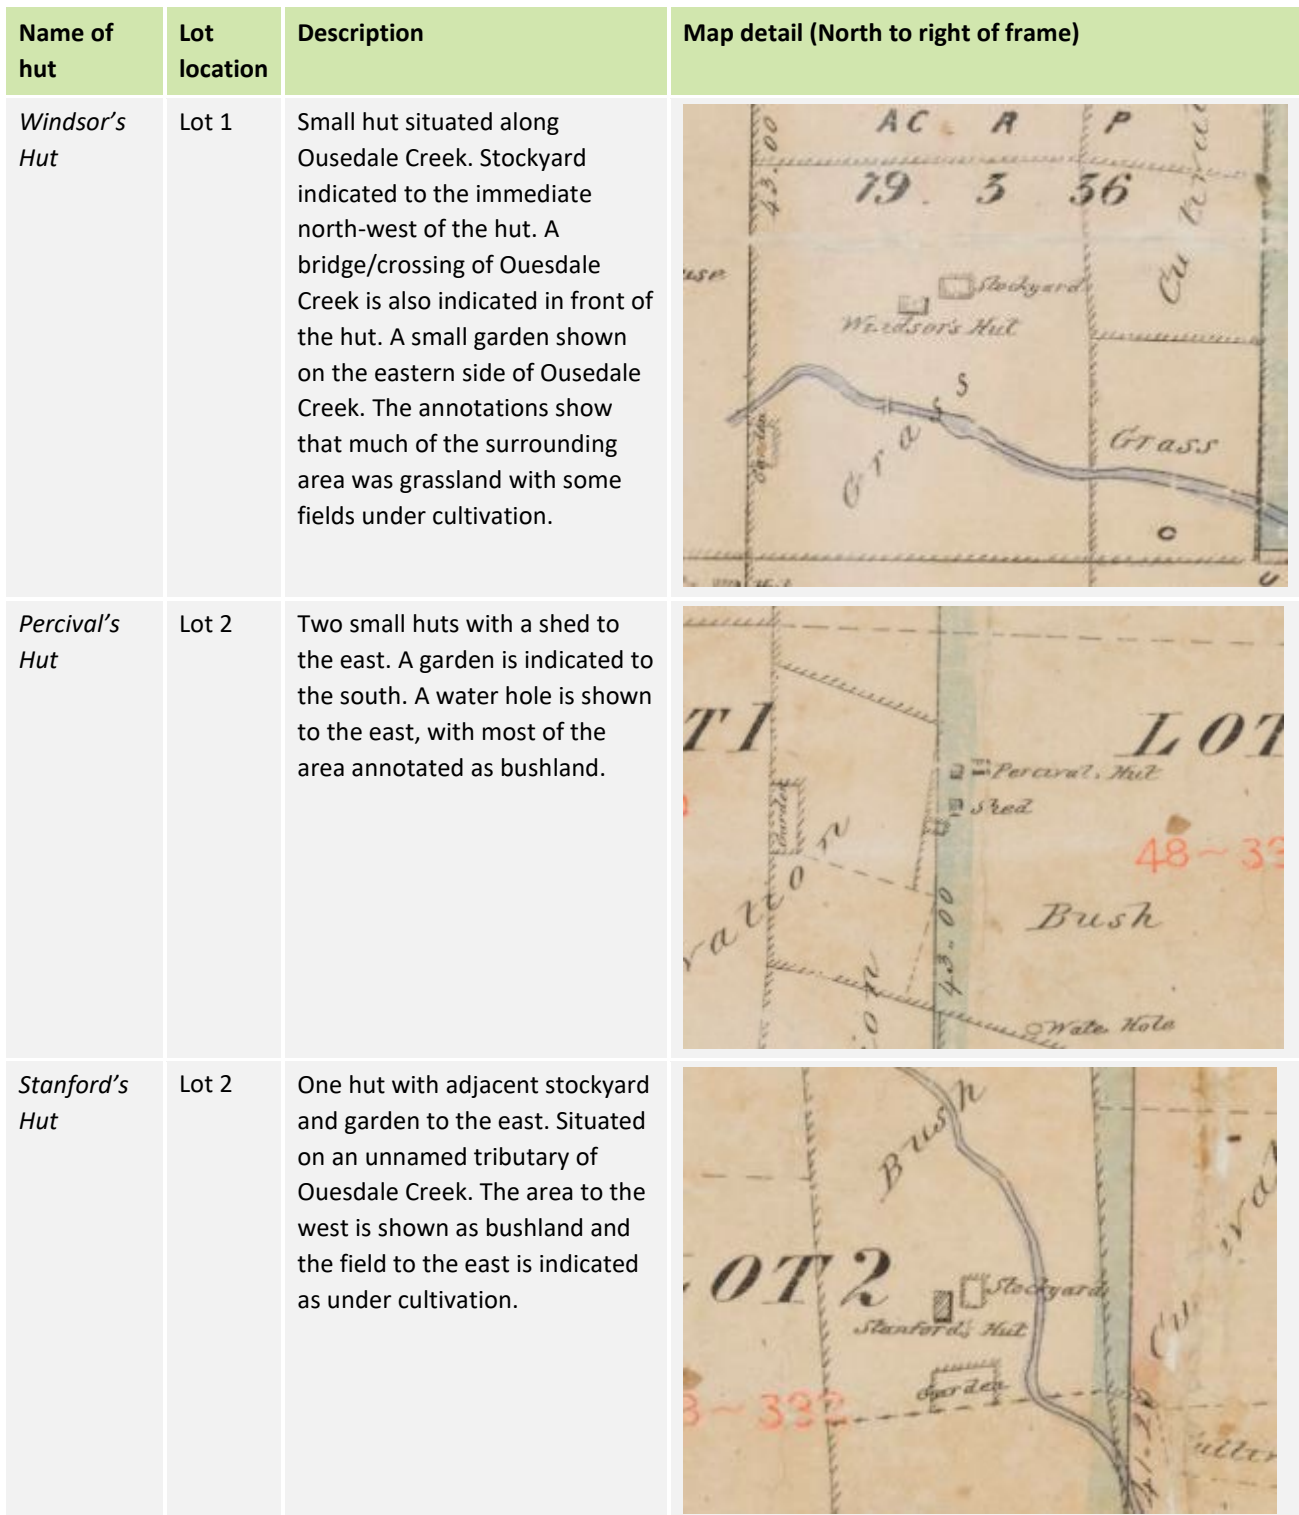 Name of hut
Lot location
Description
Map detail (North to right of frame)
Windsor's Hut
Lot 1
Small hut situated along
Ousedale Creek. Stockyard
indicated to the immediate
north-west of the hut. A
bridge/crossing of Ouesdale
Creek is also indicated in front of
the hut. A small garden shown
on the eastern side of Ousedale
Creek. The annotations show
that much of the surrounding
area was grassland with some
fields under cultivation.
AC R P
43.00
19. 3 36
use
Stockyard
Windsor's Hut
Garden
Grass
Grass
C
u
Percival's Hut
Lot 2
Two small huts with a shed to
the east. A garden is indicated to
the south. A water hole is shown
to the east, with most of the
area annotated as bushland.
T1
LOT
Percival. Hut
Shed
Garden
48~33
ration
43.00
Bush
ion
Wate Hole
Stanford's Hut
Lot 2
One hut with adjacent stockyard
and garden to the east. Situated
on an unnamed tributary of
Ouesdale Creek. The area to the
west is shown as bushland and
the field to the east is indicated
as under cultivation.
Bush
OT2
Stockyard
Stanford's Hut
Garden
8~332
Cu